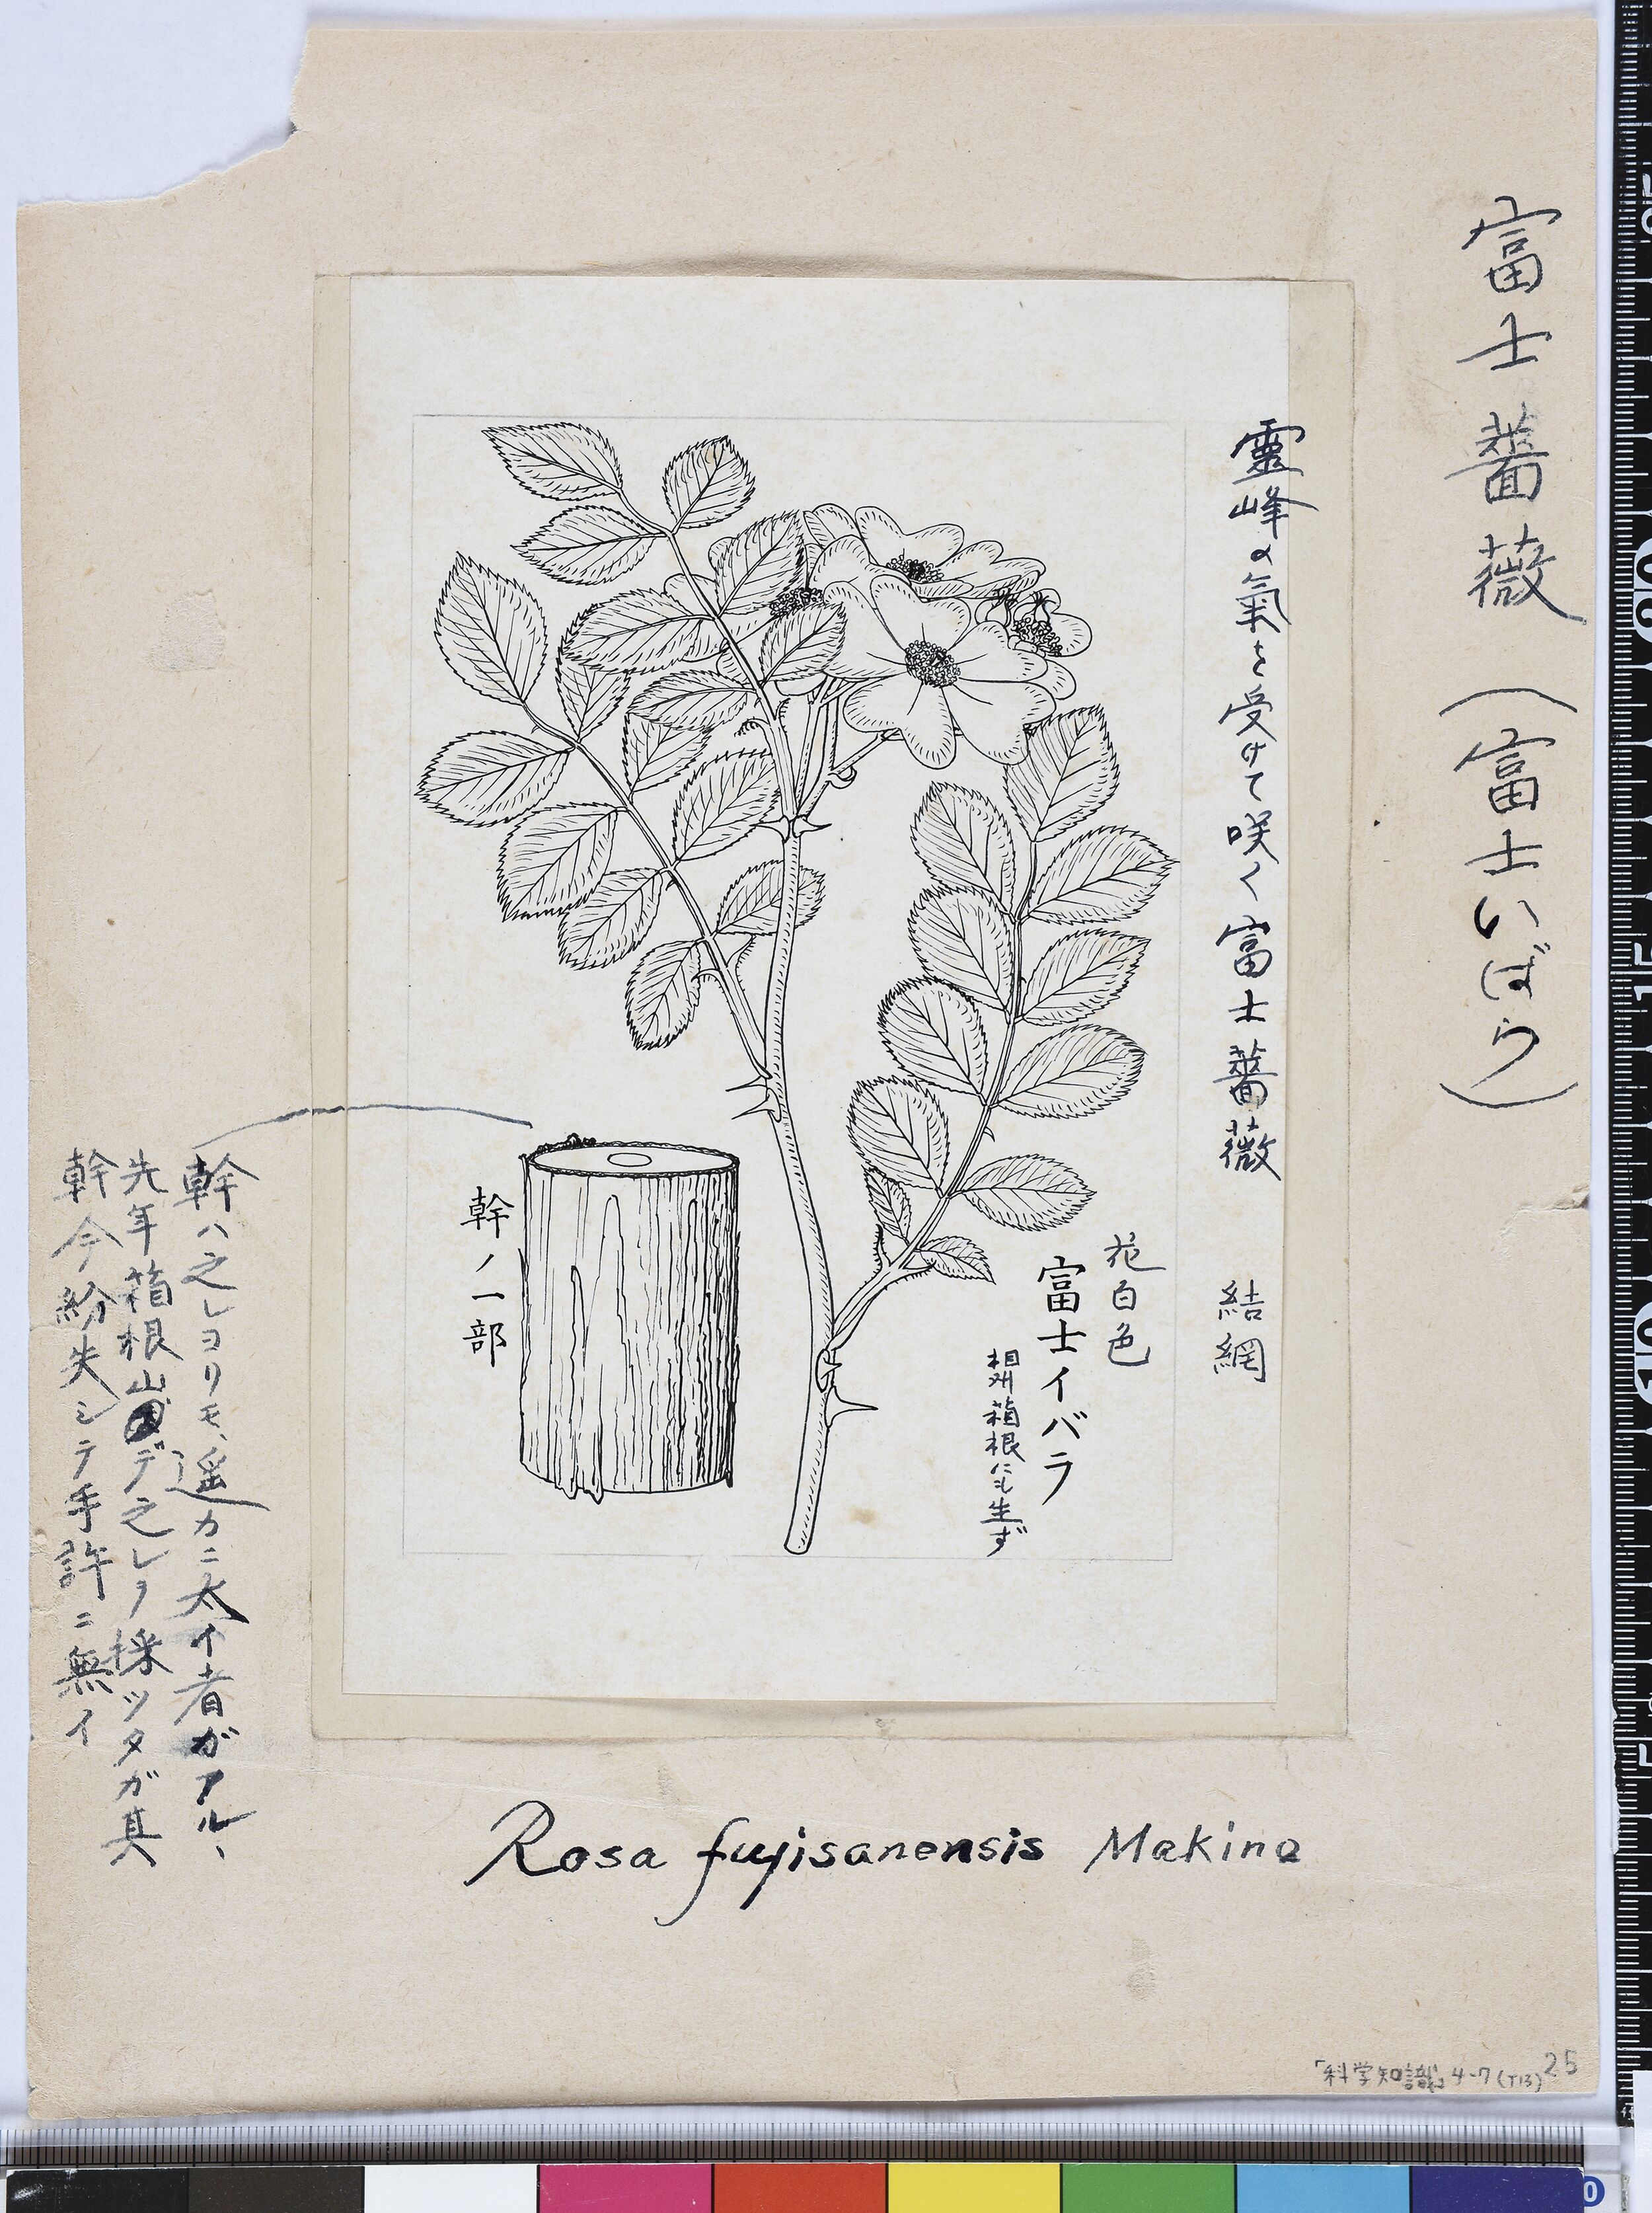 富士薔薇(富士いばら)
靈峰の氣を受けて咲く富士薔薇 結網
花白色
富士イバラ
相州箱根にも生ず
幹ノ一部
幹ハ之レヨリモ、遥カニ太イ者ガアル、
先年箱根山デ之レヲ採ツタガ其
幹今紛失シテ手許ニ無イ
Rosa fujisanensis Makino
「科学知識」4-7(T13)
25